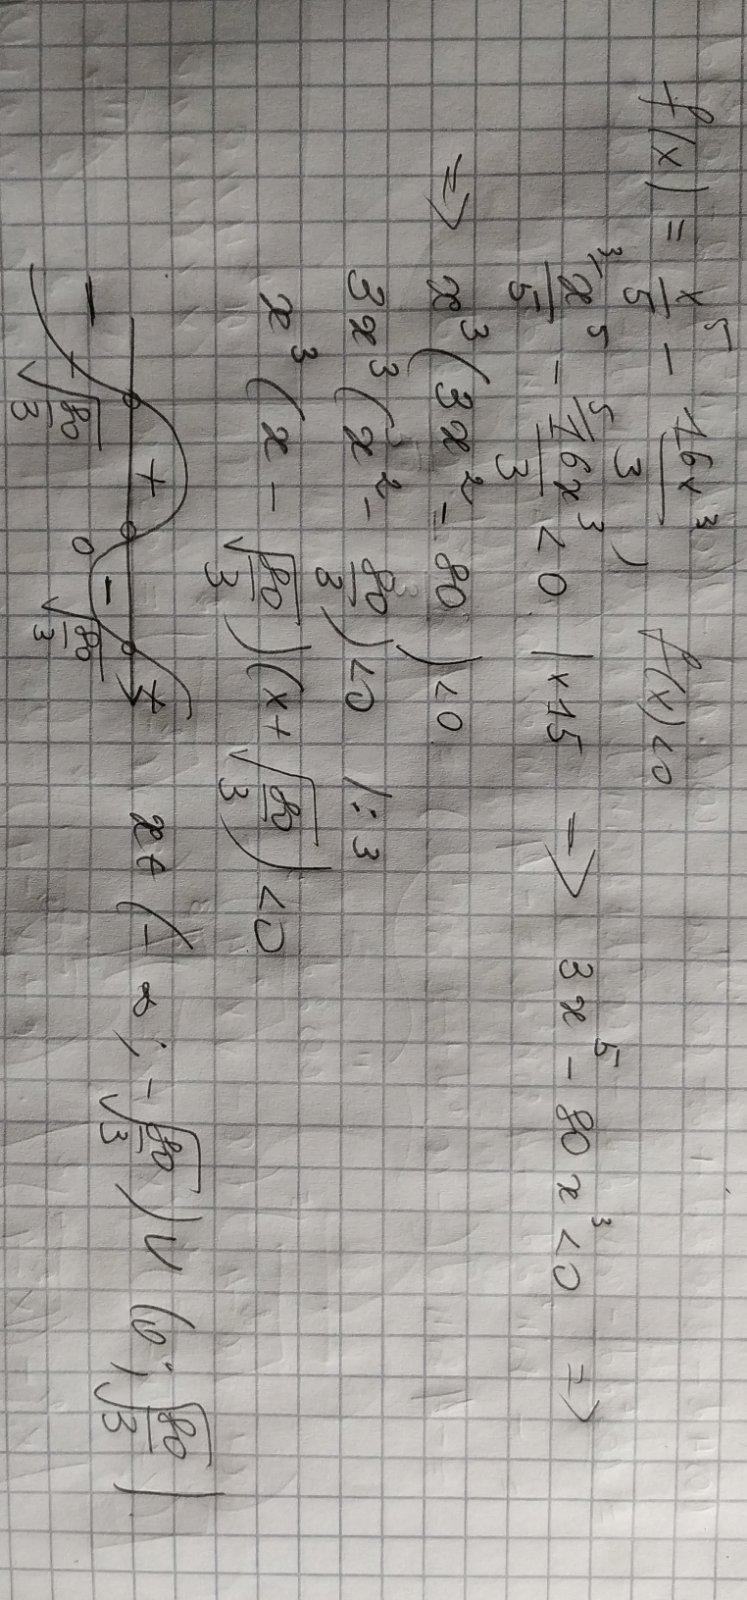 f(x) = x⁵/5 - 16x³/3 ; f(x) < 0
³⁄x⁵/5 - ⁵⁄16x³/3 < 0 | ×15 => 3x⁵ - 80x³ < 0 =>
=> x³(3x² - 80) < 0
3x³(x² - 80/3) < 0 | : 3
x³(x - √(80/3))(x + √(80/3)) < 0
- + - +
-√(80/3) 0 √(80/3)
x ∈ (-∞; -√(80/3)) ∪ (0; √(80/3))